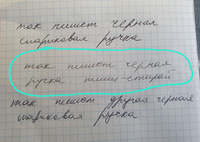 так пишет черная
шариковая ручка
так пишет черная
ручка пиши-стирай
так пишет другая черная
шариковая ручка